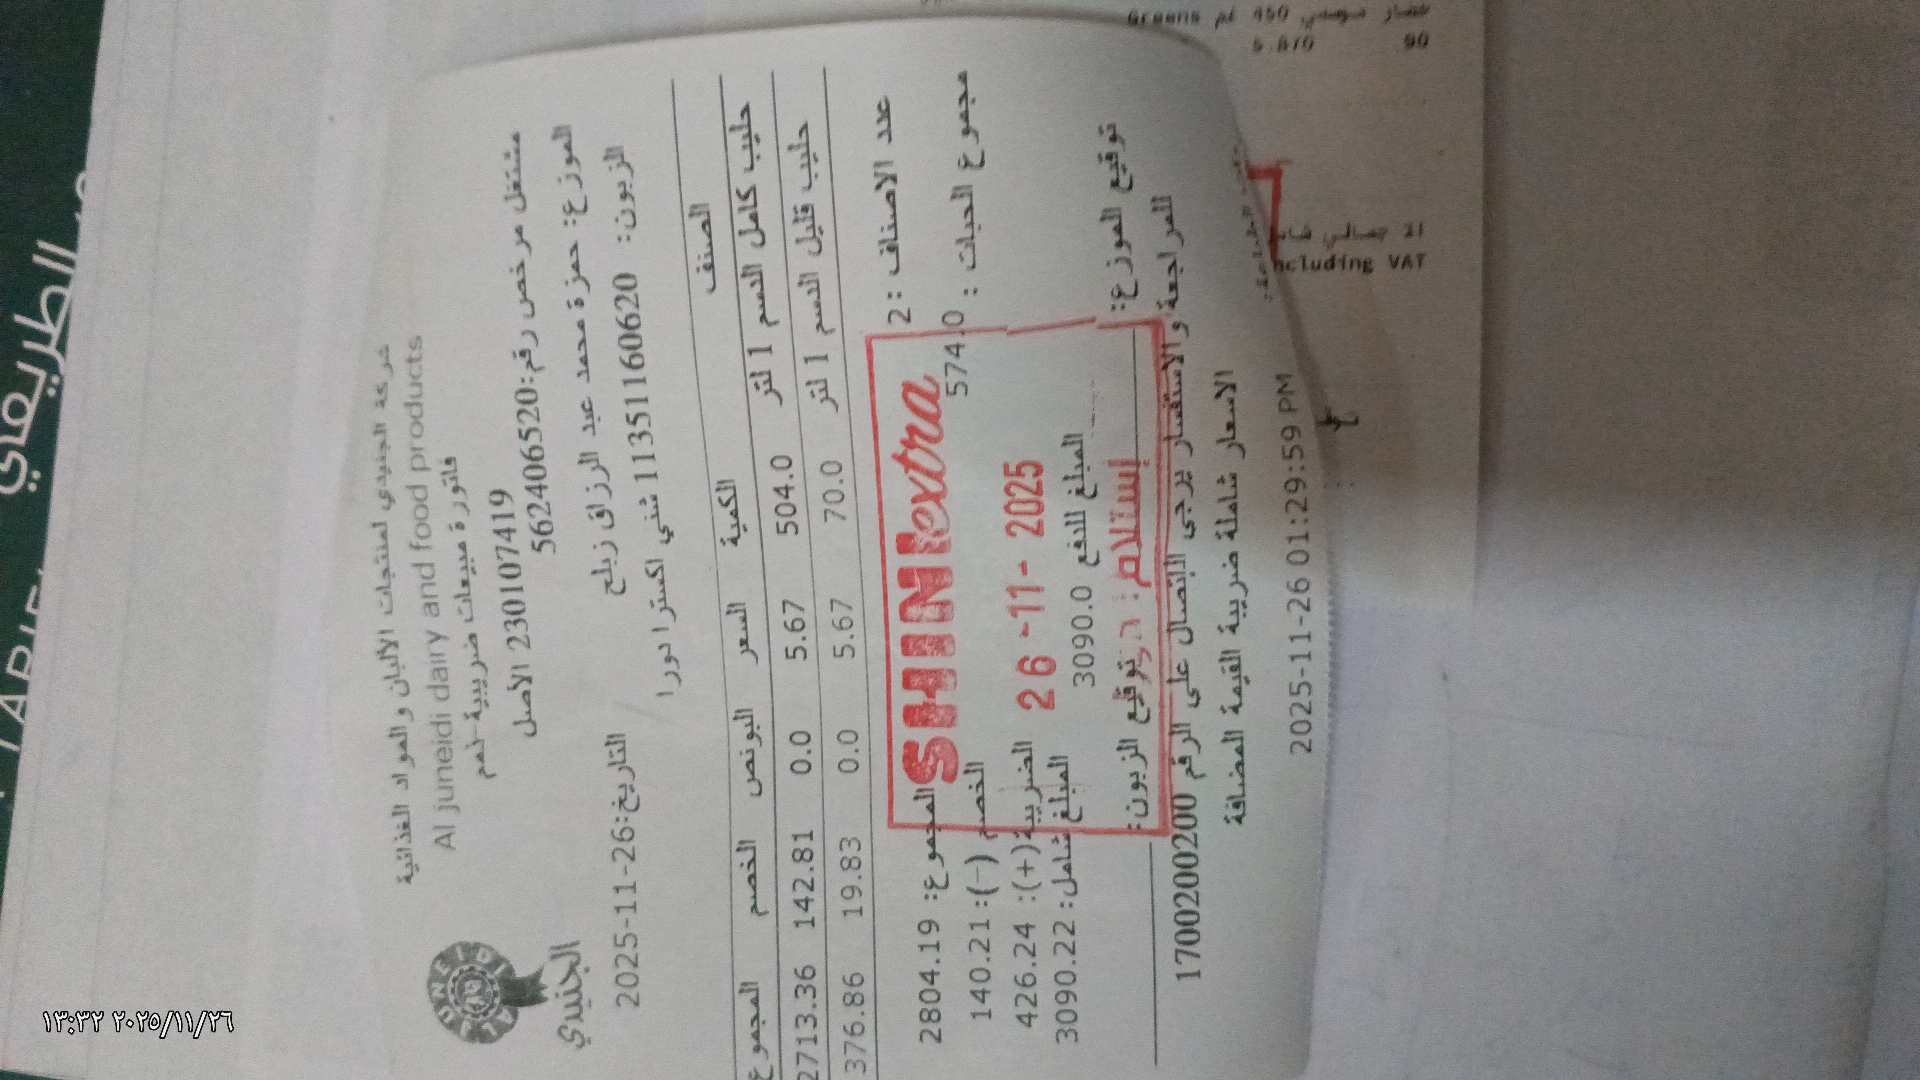 شركة الجنيدي لمنتجات الألبان والمواد الغذائية
Al juneidi dairy and food products
فاتورة مبيعات ضريبية-نعم
الجنيدي
مشتغل مرخص رقم:562406520
230107419 الاصل
الموزع: حمزة محمد عبد الرزاق زبلح
التاريخ:2025-11-26
الزبون: 11351160620 شني اكسترا دورا
الصنف الكمية السعر البونص الخصم المجموع
حليب كامل الدسم 1 لتر 504.0 5.67 0.0 142.81 2713.36
حليب قليل الدسم 1 لتر 70.0 5.67 0.0 19.83 376.86
عدد الاصناف :2
المجموع: 2804.19
مجموع الحبات : 574.0
الخصم (-): 140.21
الضريبة(+): 426.24
المبلغ شامل: 3090.22
المبلغ للدفع 3090.0
SHINI extra
26 -11- 2025
إستلام:
توقيع الموزع:
توقيع الزبون:
للمراجعة والاستفسار يرجى الاتصال على الرقم 1700200200
الاسعار شاملة ضريبة القيمة المضافة
2025-11-26 01:29:59 PM
Greens 450
90
including VAT
الطريفي
٢٠٢٥/١١/٢٦ ١٣:٣٢